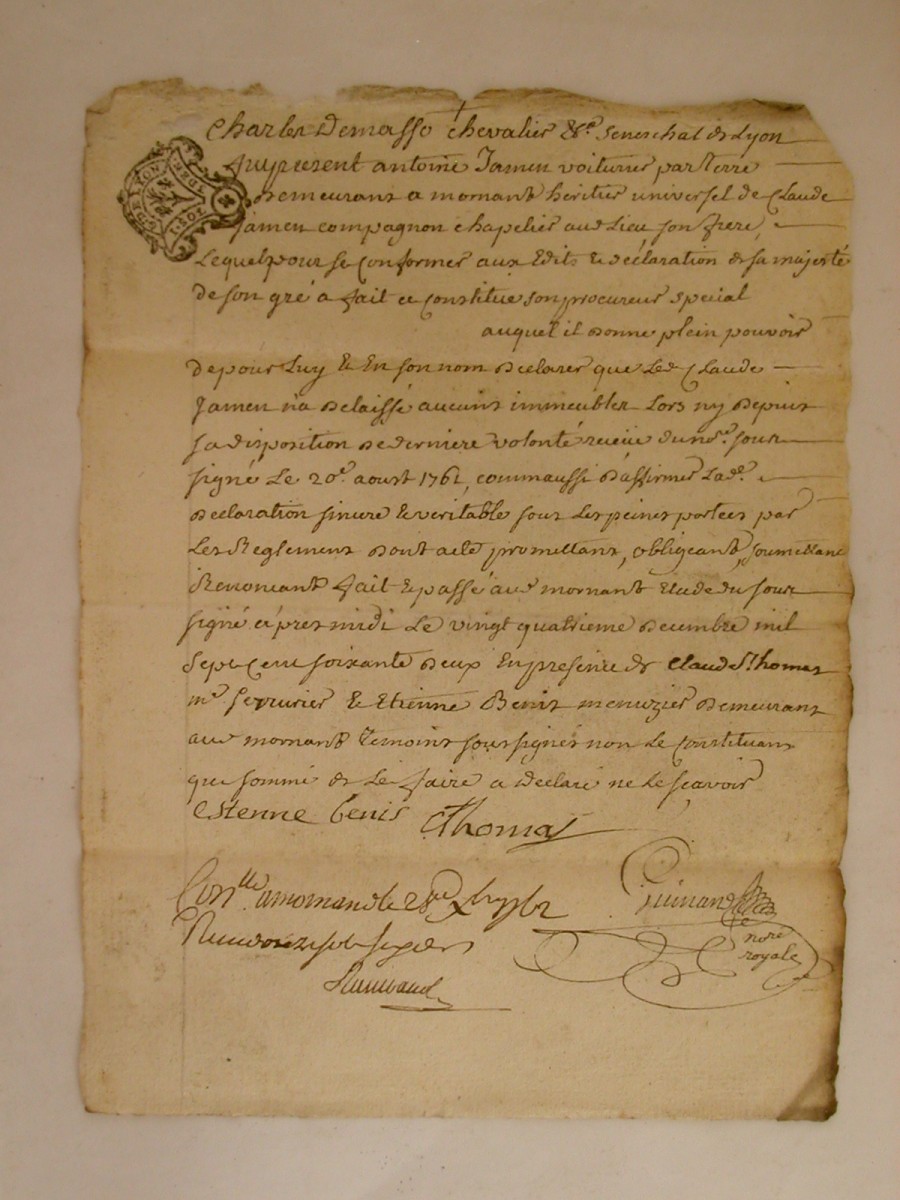 Charles Demasso chevalier &a. seneschal de Lyon
fut present antoine Jamen voiturier par terre
Demeurant a mornant heritier universel de Claude
Jamen compagnon chapelier aud. Lieu son frere,
Lequel pour se Conformer aux Edits & déclaration de sa majesté
de son gré a fait et Constitue son procureur special
auquel il Donne plein pouvoir
de pour Luy & En son nom Declarer que Led. Claude
Jamen n'a Delaissé aucuns immeubles Lors ny Depuis
sa disposition de derniere volonté reçeüe du no.re sous
signé Le 20e. aoust 1761, comm'aussi D'affirmer Lad.e
Declaration sincere & veritable sous Les peines portées par
Les Reglements Dont acte promettant, obligeant, soumettant
Renoncant fait & passé aud. mornant Etude du sous
signé a'pres midi Le vingt quatrieme Decembre mil
Sept Cent soixante Deux En presence de Claude Thomas
me. serrurier & Etienne Benis menuzier Demeurant
aud. mornant temoins soussignés non Le Constituant
que sommé de Le faire a Declaré ne Le scavoir
estienne benis CThomas
Con.lle a mornand le 28me Xbre 1762
Receu sols
Guinand
nore
royale